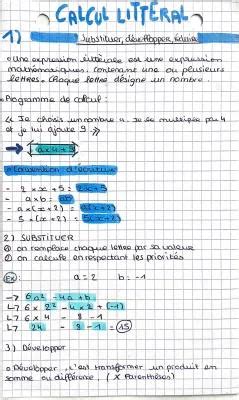 CALCUL LITTÉRAL
1) Substituer, développer, réduire
• Une expression littérale est une expression
mathématiques contenant une ou plusieurs
lettres. Chaque lettre désigne un nombre.
• Programme de calcul :
« Je choisis un nombre a. Je le multiplie par 4
et je lui ajoute 9 »
→ a×4+9
• Convention d'écriture
- 2 × x + 5 = 2x+5
- a×b = ab
- a×(x+2) = a(x+2)
- 5×(x+2) = 5(x+2)
2) SUBSTITUER
① on remplace chaque lettre par sa valeur
② on calcule en respectant les priorités
Ex: a = 2 b = -1
→ 6a² - 4a + b
↳ 6 × 2² - 4 × 2 + (-1)
↳ 6 × 4 - 8 - 1
↳ 24 - 8 - 1 = 15
3) Développer
• Développer, c'est transformer un produit en
somme ou différence. (× Parenthèses)